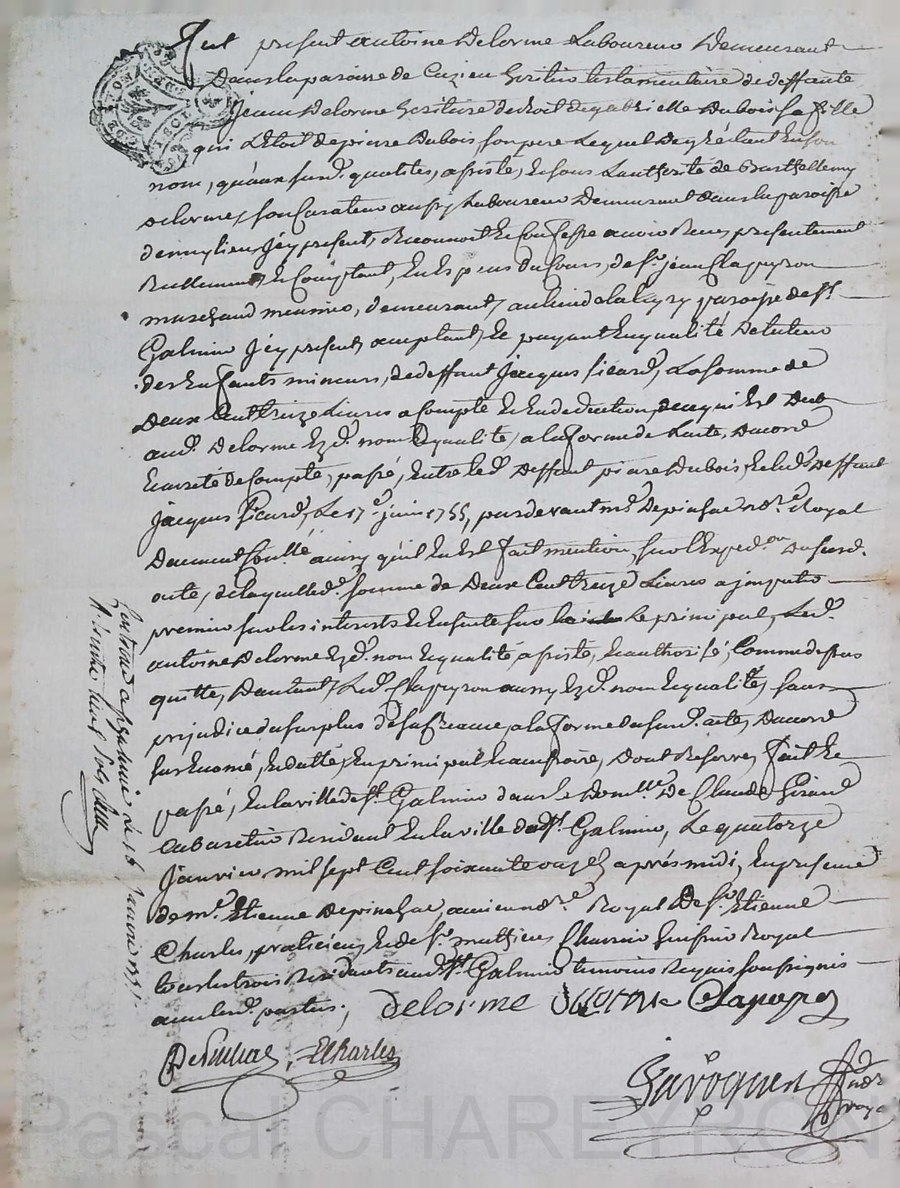 fut présent antoine Delorme Laboureur Demeurant
Dans la paroisse de Cuzieu héritier testamentaire de deffunte
Jeanne Delorme héritiere de droit de gabrielle Dubois sa fille
qui L'Etoit de pierre Dubois son pere Lequel De gré étant en son
nom, qu'aux susd. qualités, assisté, en sous L'authorité de Barthellemy
Delorme, son Curateur aussy Laboureur Demeurant dans la paroisse
icy présent, Reconnoit et Confesse avoir Receu présentement
Reellement et Comptant, en especes du Cours, de sr. jean Clapeyron
marchand meunier, demeurant, au lieu de paroisse de st.
Galmier Icy présent, acceptant, et payant en qualité De tuteur
des Enfants mineurs, de deffunt Jacques sicard, La somme de
Deux Cent treize Livres a compte et en deduction de ce qui est Deub
aud. Delorme ezd. nom et qualité, a la forme de Lacte, Dacord
et arrété de Compte, passé, entre led. Deffunt pierre Dubois, et led. Deffunt
Jacques sicard, Le 17e. juin 1755, pardevant me. Depinhac nore. Royal
Deument Conllé ainsy qu'il en est fait mention, sur L'Exped.on Du susd.
acte, de laquelle de. somme de Deux Cent treize Livres a imputer
premier sur les interests et Ensuite sur Le principal, Led.
antoine Delorme ezd. nom et qualité, assisté, et authorisé, Comme dessus
quitte, Dautant, Led. Clapeyron aussy ezd. nom et qualité, sans
prejudice du surplus de sa Creance, a la forme du susd. acte, Dacord
en datté, en principal et accessoire, Dont Reserve, fait et
passé, en la ville de st. Galmier dans le Domlle. De Claude Girard
Cabaretier Residant en la ville dudt. st. Galmier, Le quatorze
Janvier mil sept Cent soixante onze, après midi, en présence
de me. Etienne Depinhac, ancien nore. Royal De sr. Etienne
Charles, praticien, et de sr. mathieu huissier Royal
tous les trois Residants aud. st. Galmier temoins Requis soussignés
avec lesd. parties;
delorme Delorme Clapeyron
Depinhac, E Charles
Javoguen nore. roya
Controllé a st galmier Le 16 janvier 1771
Reçu sols
Pascal CHAREYRON